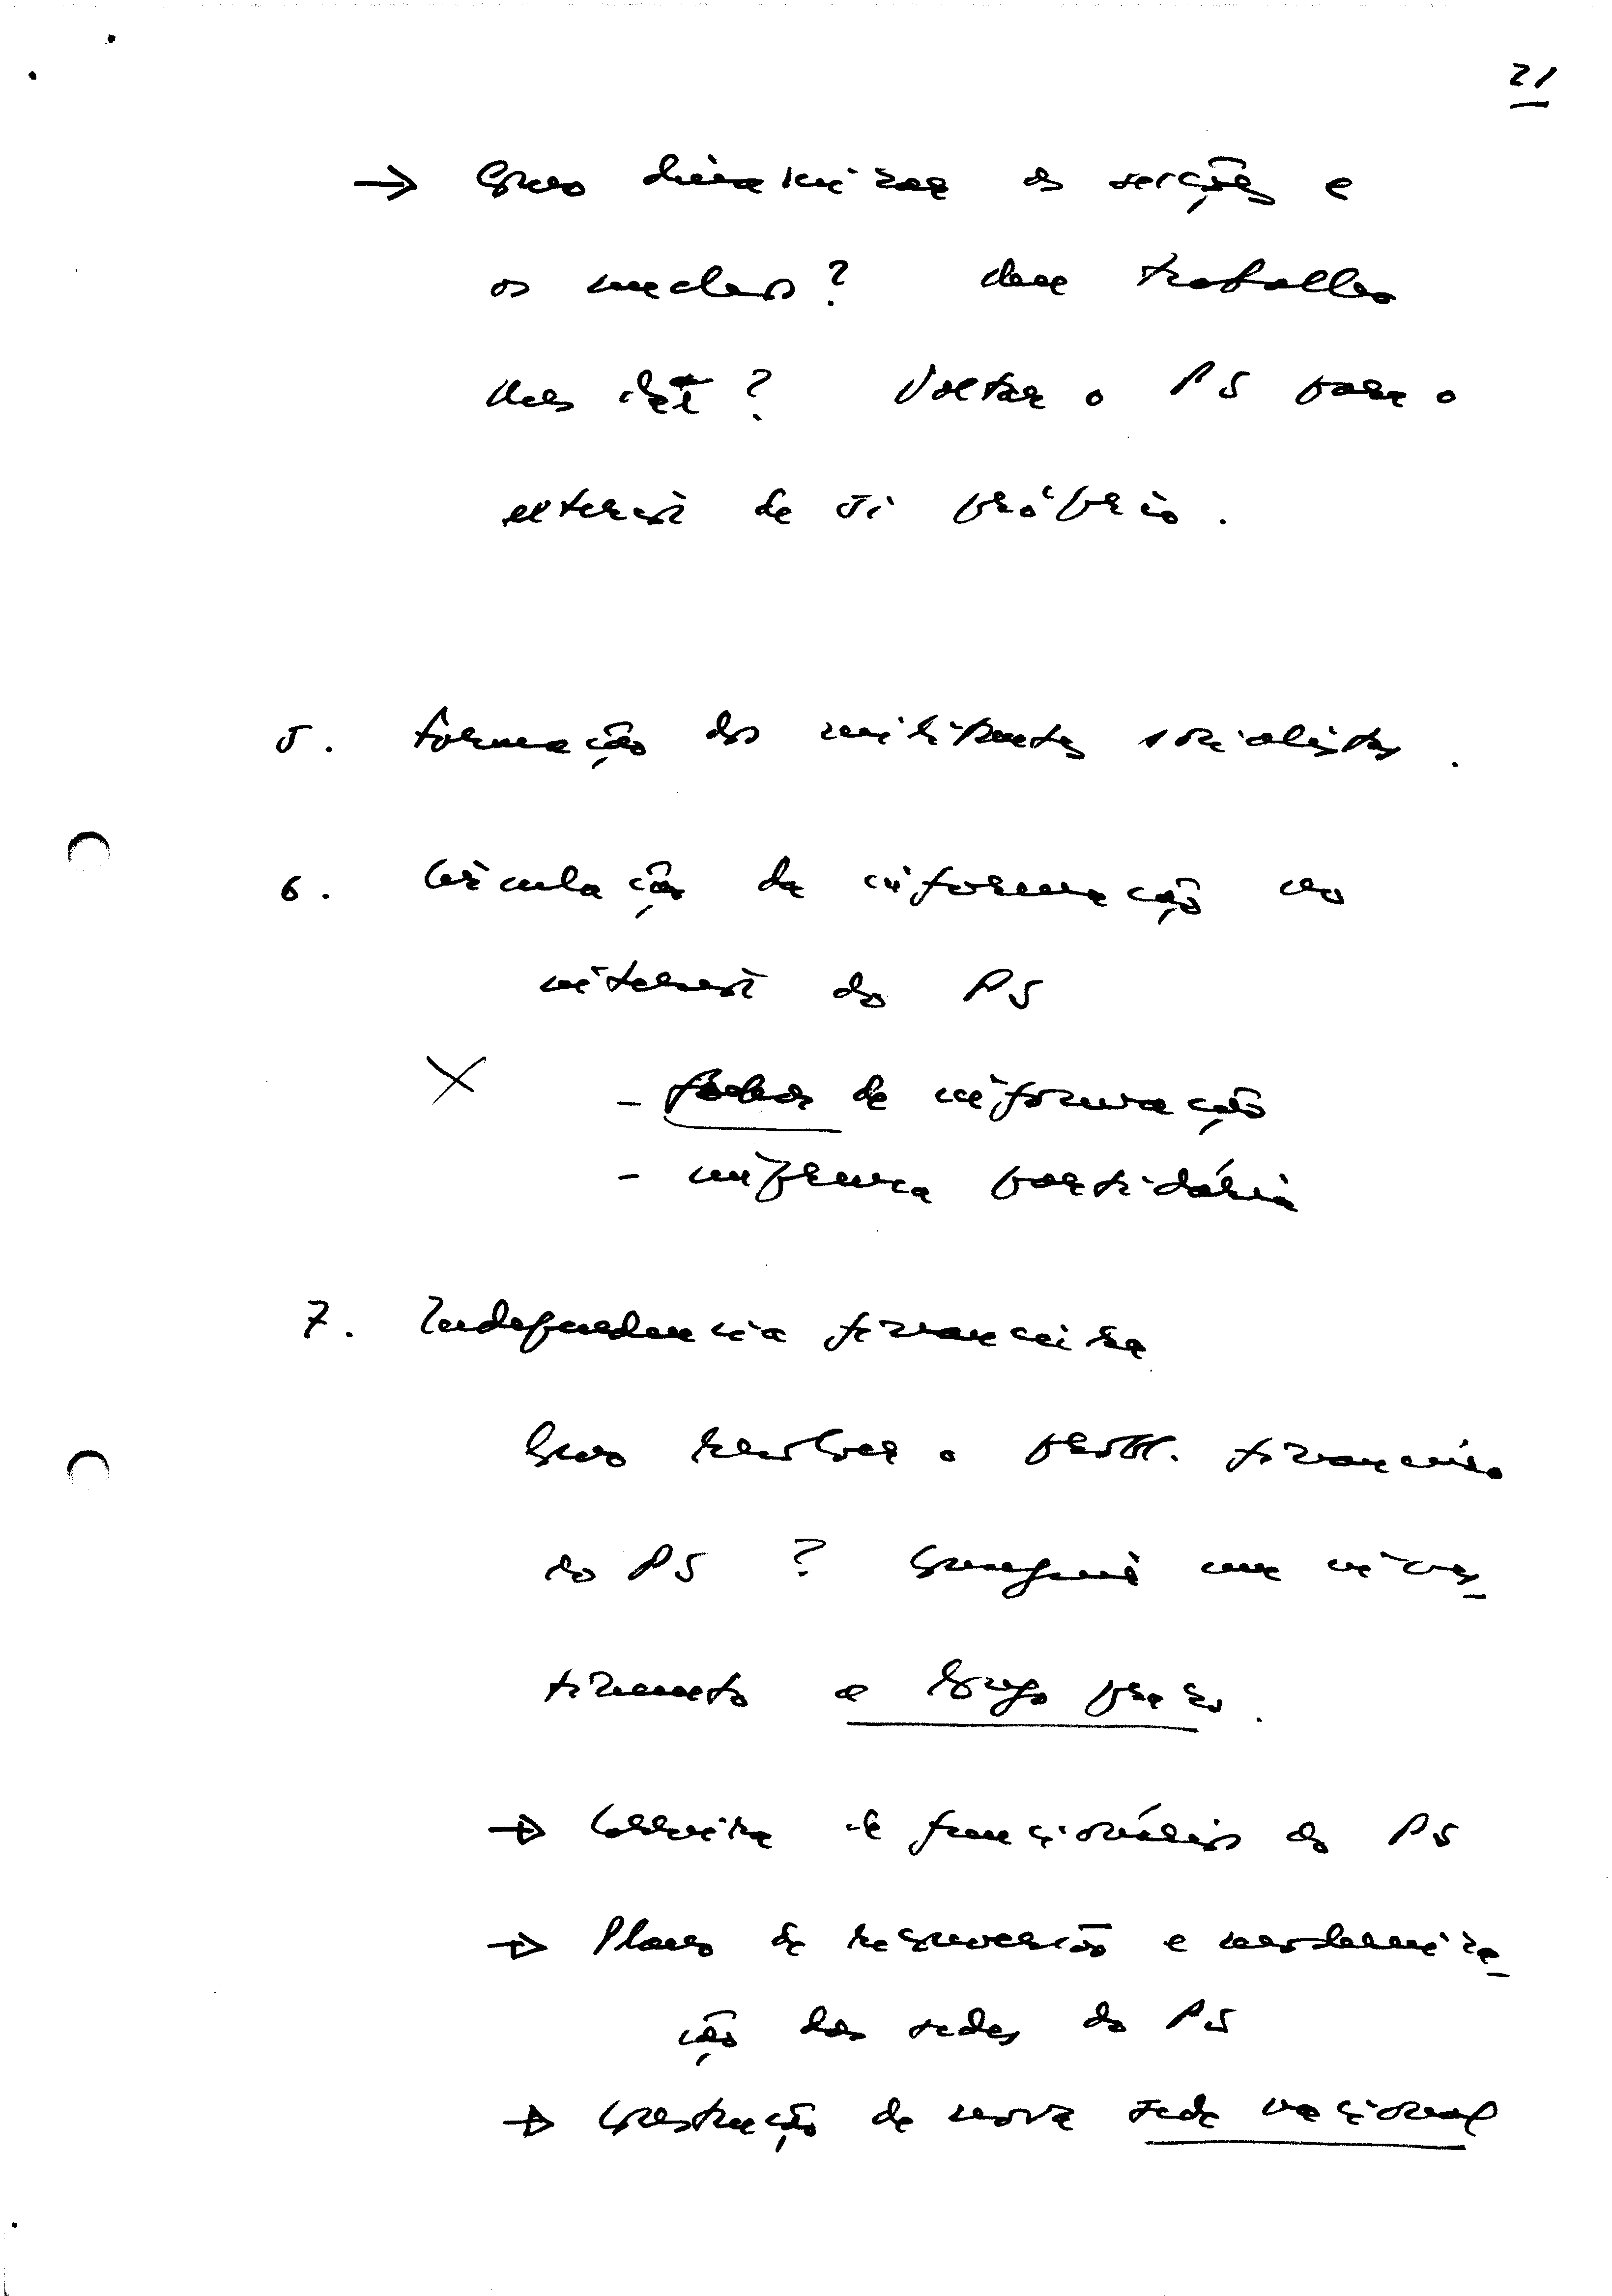 21
→ Como dinamizar as secções e
os núcleos? Que trabalho
lhes dar? Voltar o PS para o
exterior de si próprio.
5. Formação dos militantes socialistas.
6. Circulação da informação no
interior do PS
X - de informação
- imprensa partidária
7. Independencia financeira
Como resolver o probl. financeiro
do PS ? um inves_
timento a longo prazo.
→ Carreira de funcionários do PS
→ Plano de recuperação e moderniza_
ção das sedes do PS
→ Construção da nova sede nacional